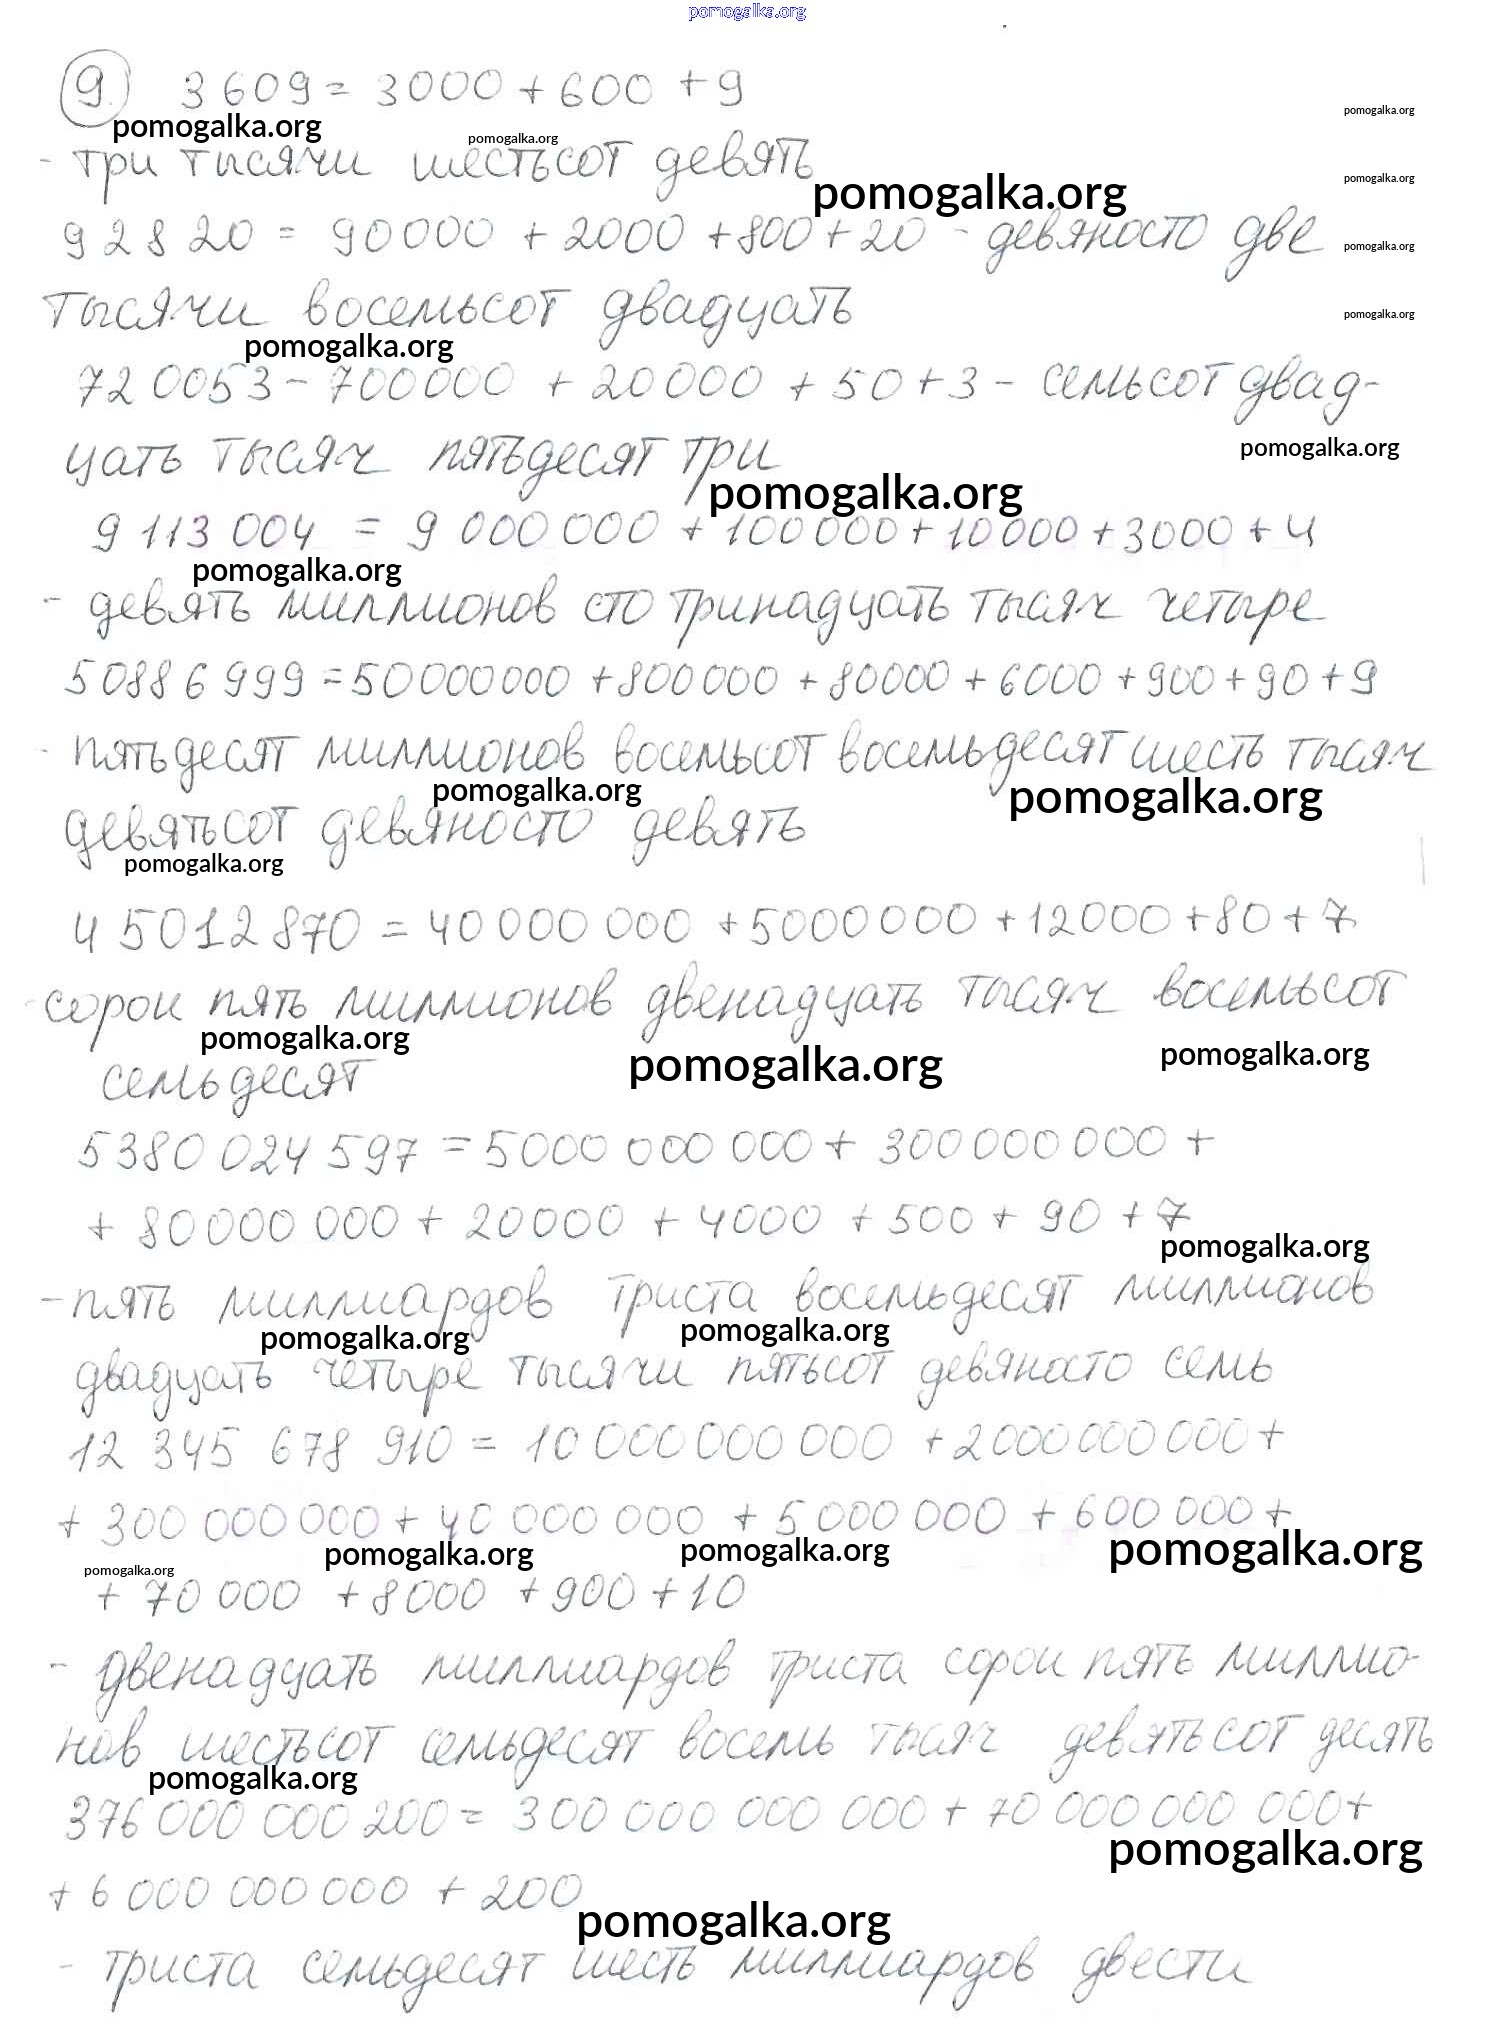 pomogalka.org
9. 3609 = 3000 + 600 + 9
pomogalka.org pomogalka.org pomogalka.org
- три тысячи шестьсот девять
pomogalka.org pomogalka.org
92820 = 90000 + 2000 + 800 + 20 - девяносто две
pomogalka.org
тысячи восемьсот двадцать
pomogalka.org
pomogalka.org
720053 - 700000 + 20000 + 50 + 3 - семьсот двад-
цать тысяч пятьдесят три
pomogalka.org
pomogalka.org
9 113 004 = 9 000 000 + 100000 + 10000 + 3000 + 4
pomogalka.org
- девять миллионов сто тринадцать тысяч четыре
50886999 = 50000000 + 800000 + 80000 + 6000 + 900 + 90 + 9
- пятьдесят миллионов восемьсот восемьдесят шесть тысяч
pomogalka.org pomogalka.org
девятьсот девяносто девять
pomogalka.org
45012870 = 40 000 000 + 5000000 + 12000 + 80 + 7
- сорок пять миллионов двенадцать тысяч восемьсот
pomogalka.org pomogalka.org pomogalka.org
семьдесят
5380 024 597 = 5000 000 000 + 300 000 000 +
+ 80000 000 + 20000 + 4000 + 500 + 90 + 7
pomogalka.org
- пять миллиардов триста восемьдесят миллионов
pomogalka.org pomogalka.org
двадцать четыре тысячи пятьсот девяносто семь
12 345 678 910 = 10 000 000 000 + 2000 000 000 +
+ 300 000 000 + 40 000 000 + 5 000 000 + 600 000 +
pomogalka.org pomogalka.org pomogalka.org
pomogalka.org
+ 70 000 + 8000 + 900 + 10
- двенадцать миллиардов триста сорок пять миллио-
нов шестьсот семьдесят восемь тысяч девятьсот десять
pomogalka.org
376 000 000 200 = 300 000 000 000 + 70 000 000 000 +
pomogalka.org
+ 6 000 000 000 + 200
pomogalka.org
- триста семьдесят шесть миллиардов двести